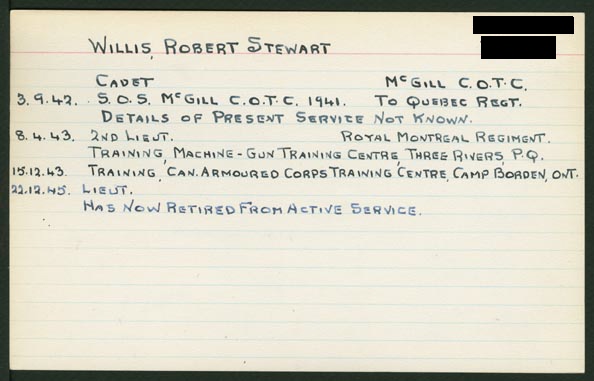 WILLIS, ROBERT STEWART
CADET McGILL C.O.T.C.
3.9.42. S.O.S. McGILL C.O.T.C. 1941. TO QUEBEC REGT.
DETAILS OF PRESENT SERVICE NOT KNOWN.
8.4.43. 2ND LIEUT. ROYAL MONTREAL REGIMENT.
TRAINING, MACHINE-GUN TRAINING CENTRE, THREE RIVERS, P.Q.
15.12.43. TRAINING, CAN. ARMOURED CORPS TRAINING CENTRE, CAMP BORDEN, ONT.
22.12.45. LIEUT.
HAS NOW RETIRED FROM ACTIVE SERVICE.